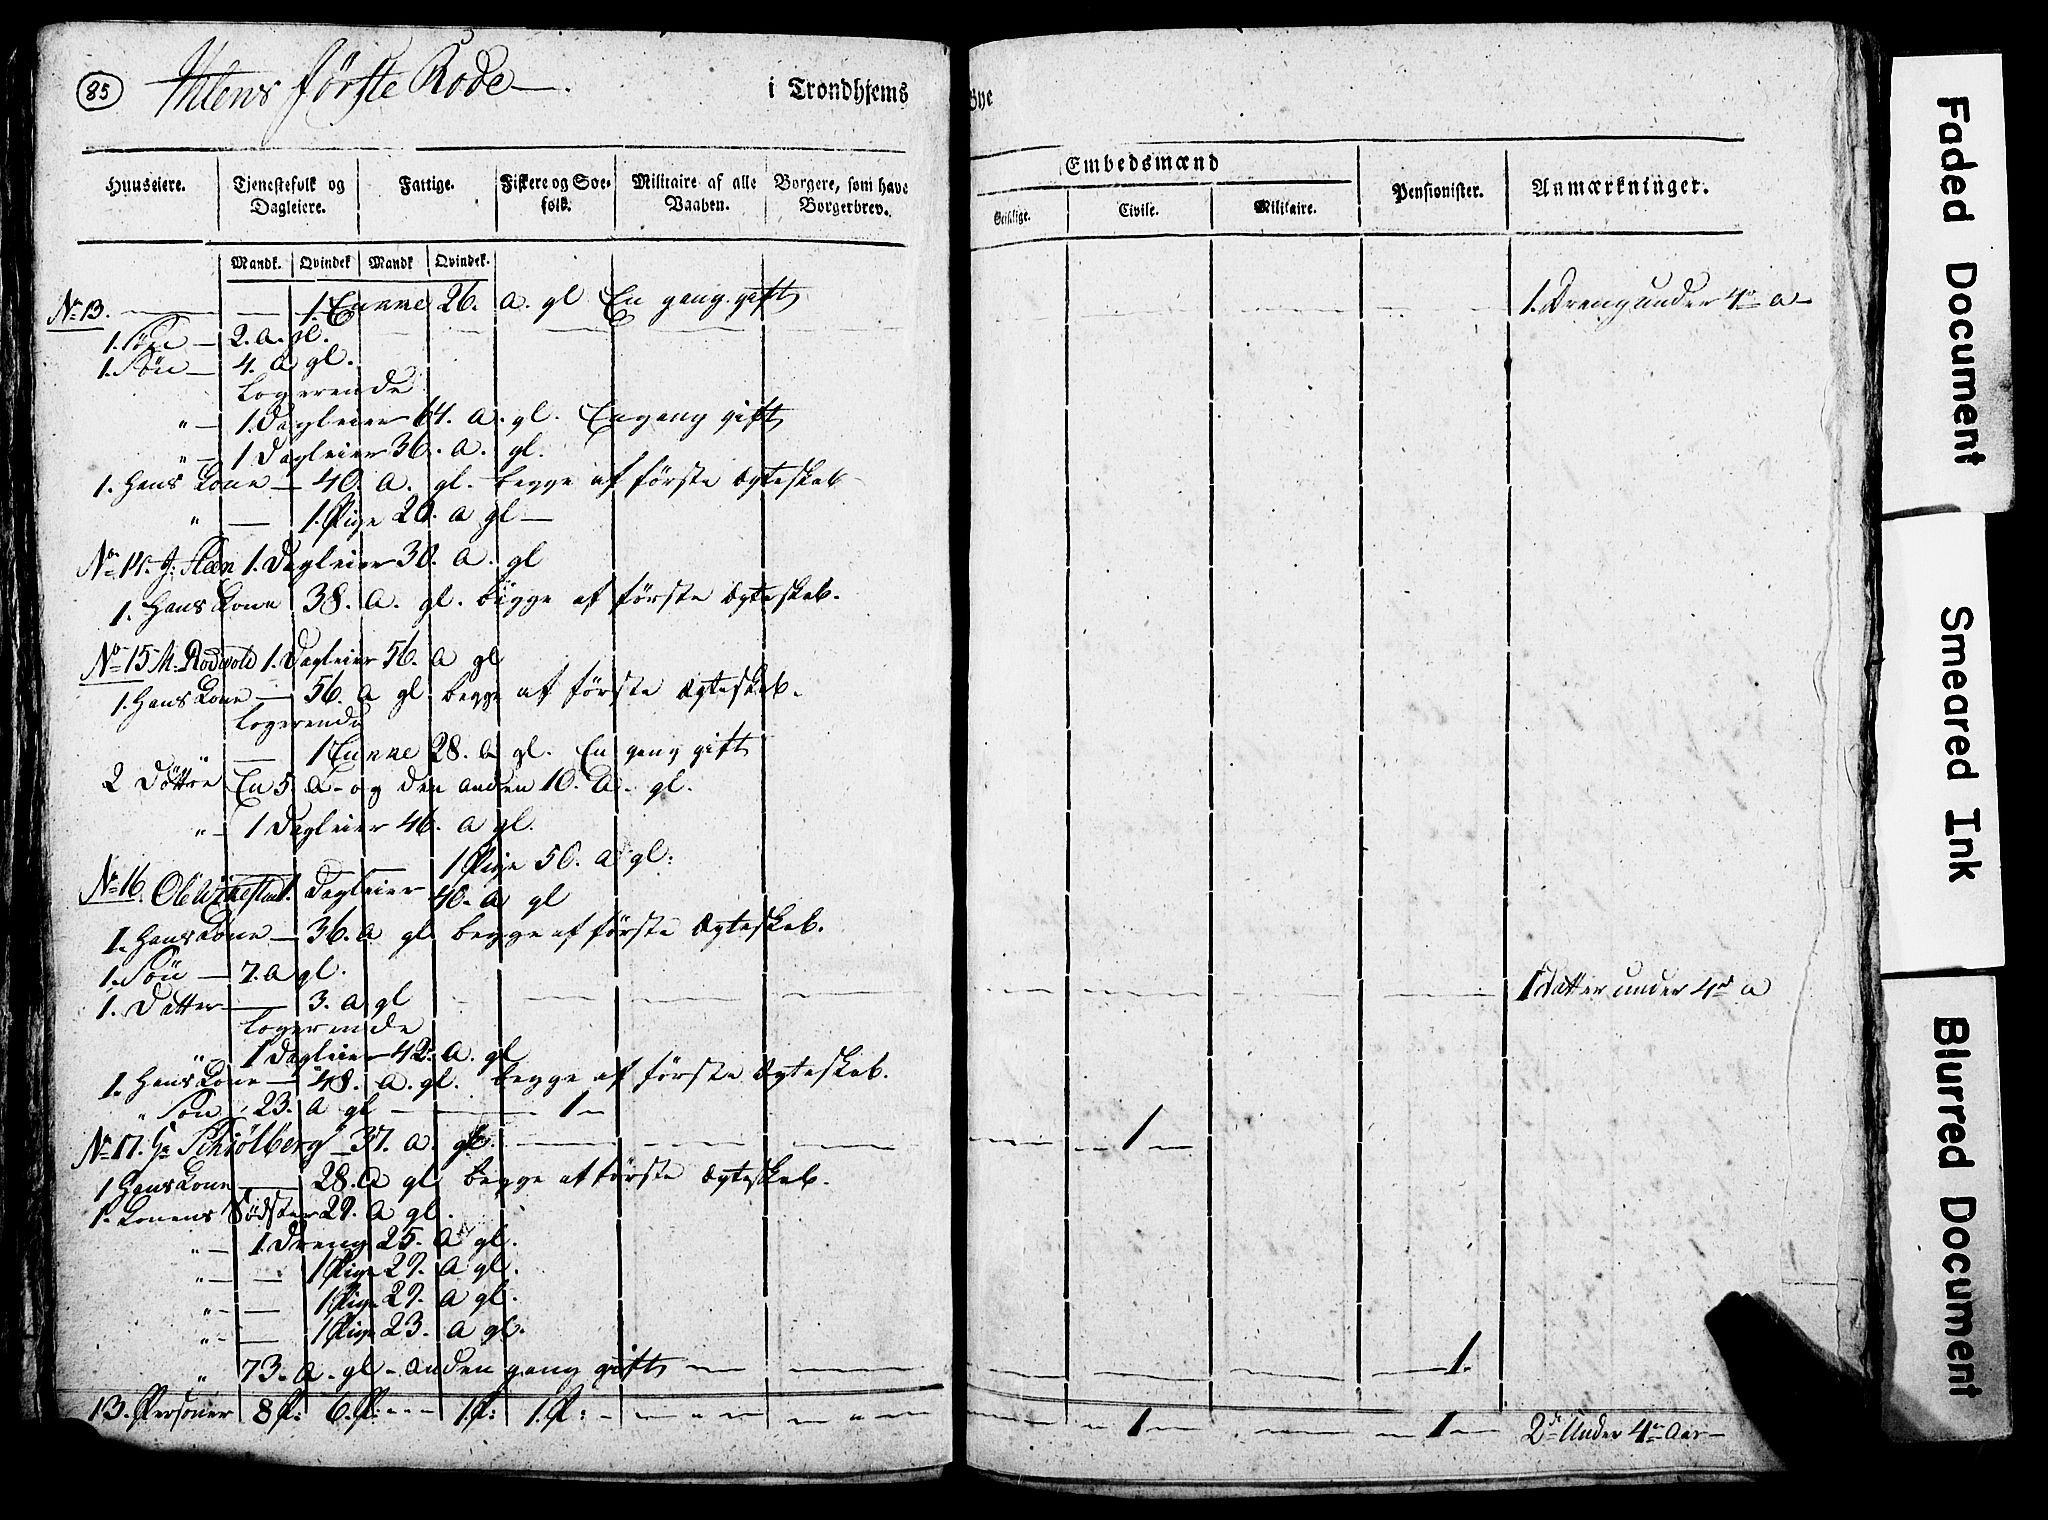 85
Ihlens første Rode
i Trondhjems
Bye
Huuseiere.
Tjenestefolk og Dagleiere.
Fattige.
Fiskere og Soe-folk.
Militaire af alle Vaaben.
Borgere, som have Borgerbrev.
Embedsmænd
Geistlige.
Civile.
Militaire.
Pensionister.
Anmærkninger.
Mandk. Qvindek. Mandk. Qvindek.
No 13. — — 1. 26. a. gl En gang gift — 1. Dreng under 4re a
1. Søn — 2. a. gl.
1. Søn — 4. a gl.
Logerende
" — 1. Dagleier 64. a. gl. En gang gift
" — 1 Dagleier 36. a. gl.
1. Hans Kone — 40. a. gl. begge af første Ægteskab
" — 1. Pige 20. a gl —
No 14. J: Steen 1. Dagleier 30. a. gl
1. Hans Kone 38. a. gl. begge af første Ægteskab.
No 15 M: Rodvold 1. Dagleier 56. a gl
1. Hans Kone — 56. a gl. begge af første Ægteskab.
Logerende
" — 1 28. a gl. En gang gift
2 Døttre En 5. a — og den anden 10. a. gl.
" — 1 Dagleier 46. a gl.
1 Pige 50. a gl:
No 16. Ole 1. Dagleier 40. a gl
1. Hans Kone — 36. a gl. begge af første Ægteskab.
1. Søn — 7. a gl.
1. Datter — 3. a gl — 1 Datter under 4re a
Logerende
" 1 Dagleier 42. a. gl
1. Hans Kone — 48. a. gl. begge af første Ægteskab.
" Søn 23. a gl — 1 —
No 17. Schiølberg — 37. a. gl. — 1 —
1 Hans Kone — 28. a gl begge af første Ægteskab.
1. Konens Södster 29. a gl.
" — 1. Dreng 25. a gl.
" — 1 Pige 29. a gl.
" — 1 Pige 29. a gl.
" — 1 Pige 23. a gl.
" 73. a. gl — anden gang gift — 1.
13. Personer 8 P: 6. P: — 1 P: 1. P: — 1 — 1 — 2de Under 4re Aar —
Faded Document
Smeared Ink
Blurred Document